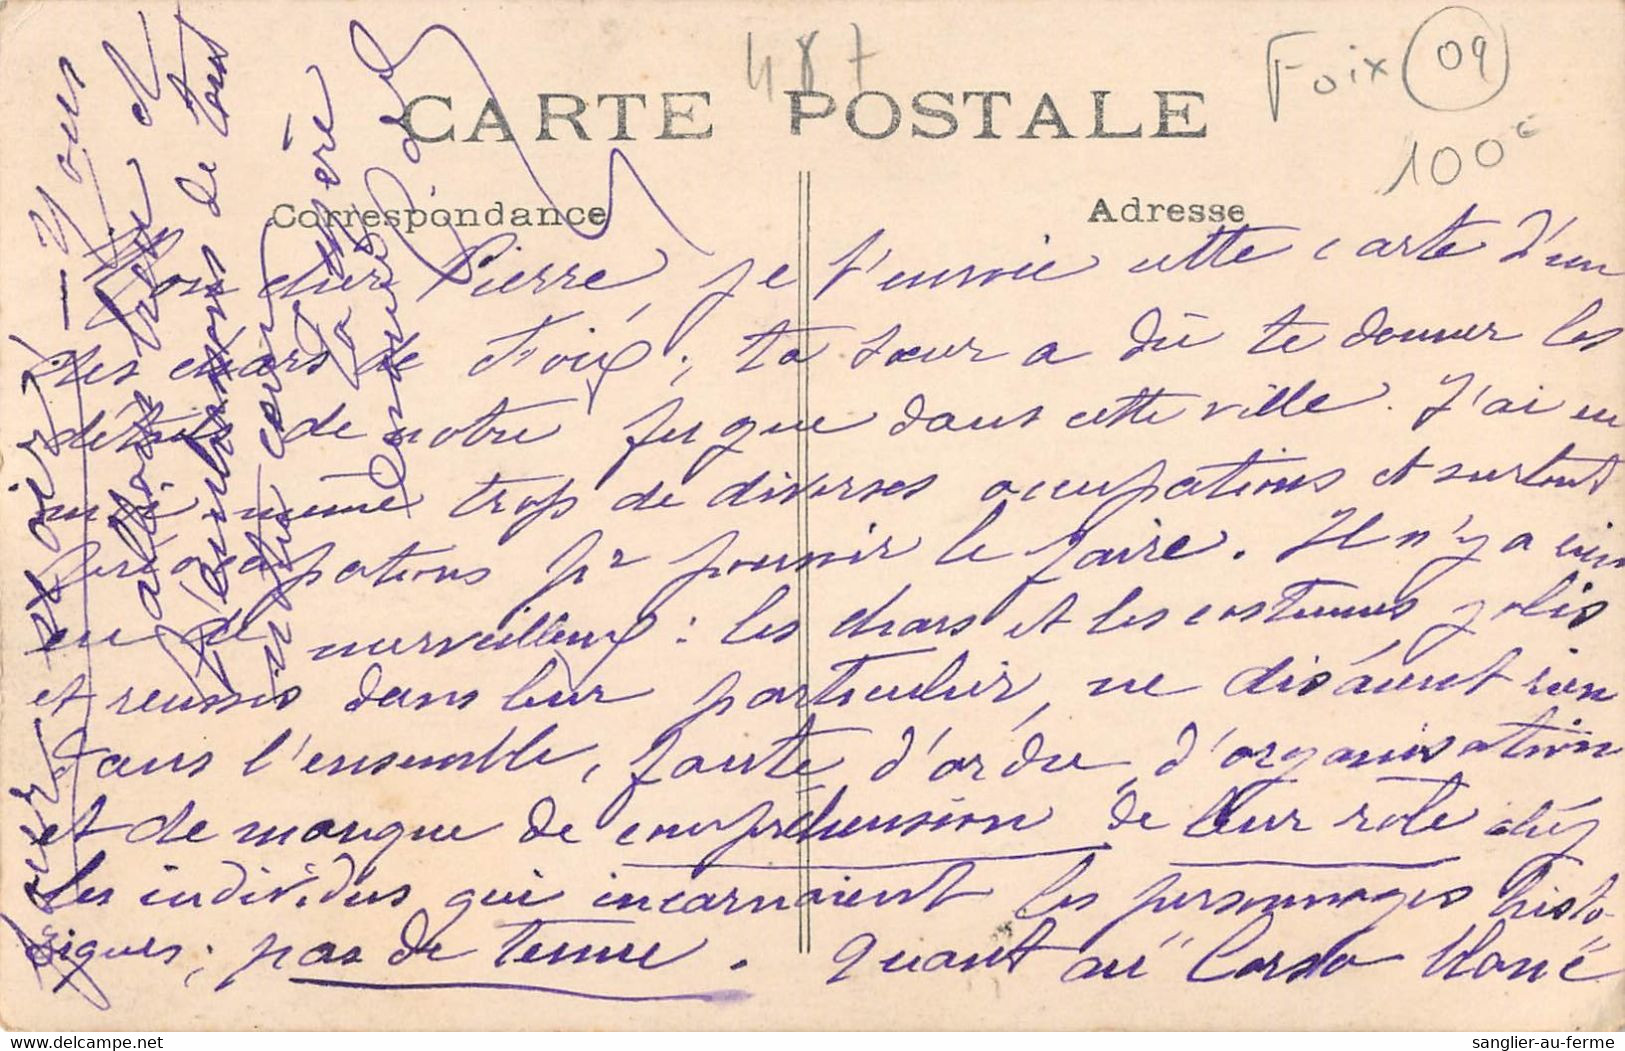 487
Foix 09
100c
CARTE POSTALE
Correspondance
Adresse
Mon cher Pierre, je t'envoie cette carte d'un
des chars de Foix; ta sœur a dû te donner les
détails de notre fugue dans cette ville. J'ai eu
moi même trop de diverses occupations et surtout
préoccupations pr pouvoir le faire. Il n'y a rien
eu de merveilleux : les chars et les costumes jolis
et reussis dans leur particulier, ne disaient rien
dans l'ensemble, faute d'ordre, d'organisation
et de manque de compréhension de leur role chez
les individus qui incarnaient les personnages histo-
riques; pas de tenue. Quant au "Corso blanc
et oir. - Nous
allons bien et
t'embrassons de tout
notre cœur
Ta mère
sanglier-au-ferme
www.delcampe.net